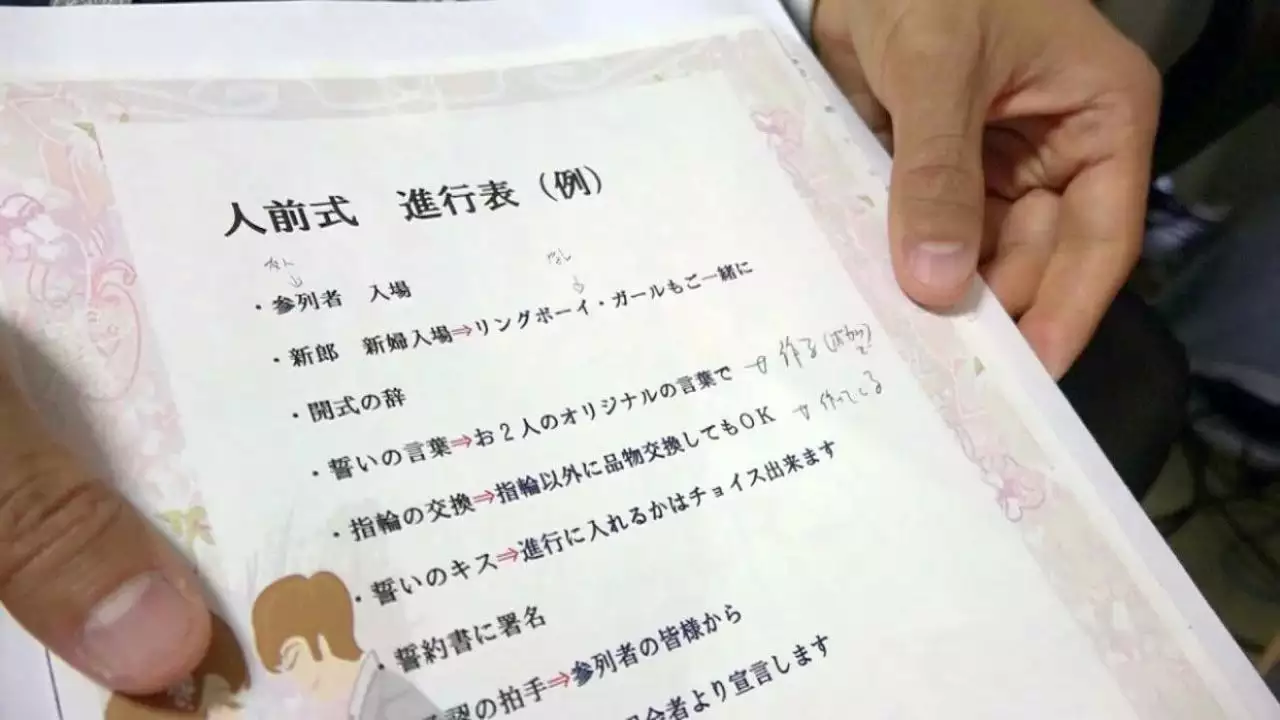 人前式　進行表（例）
・参列者　入場
・新郎　新婦入場⇒リングボーイ・ガールもご一緒に
・開式の辞
・誓いの言葉⇒お２人のオリジナルの言葉で → 作る
・指輪の交換⇒指輪以外に品物交換してもＯＫ → 作ってくる
・誓いのキス⇒進行に入れるかはチョイス出来ます
・誓約書に署名
認の拍手⇒参列者の皆様から
会者より宣言します